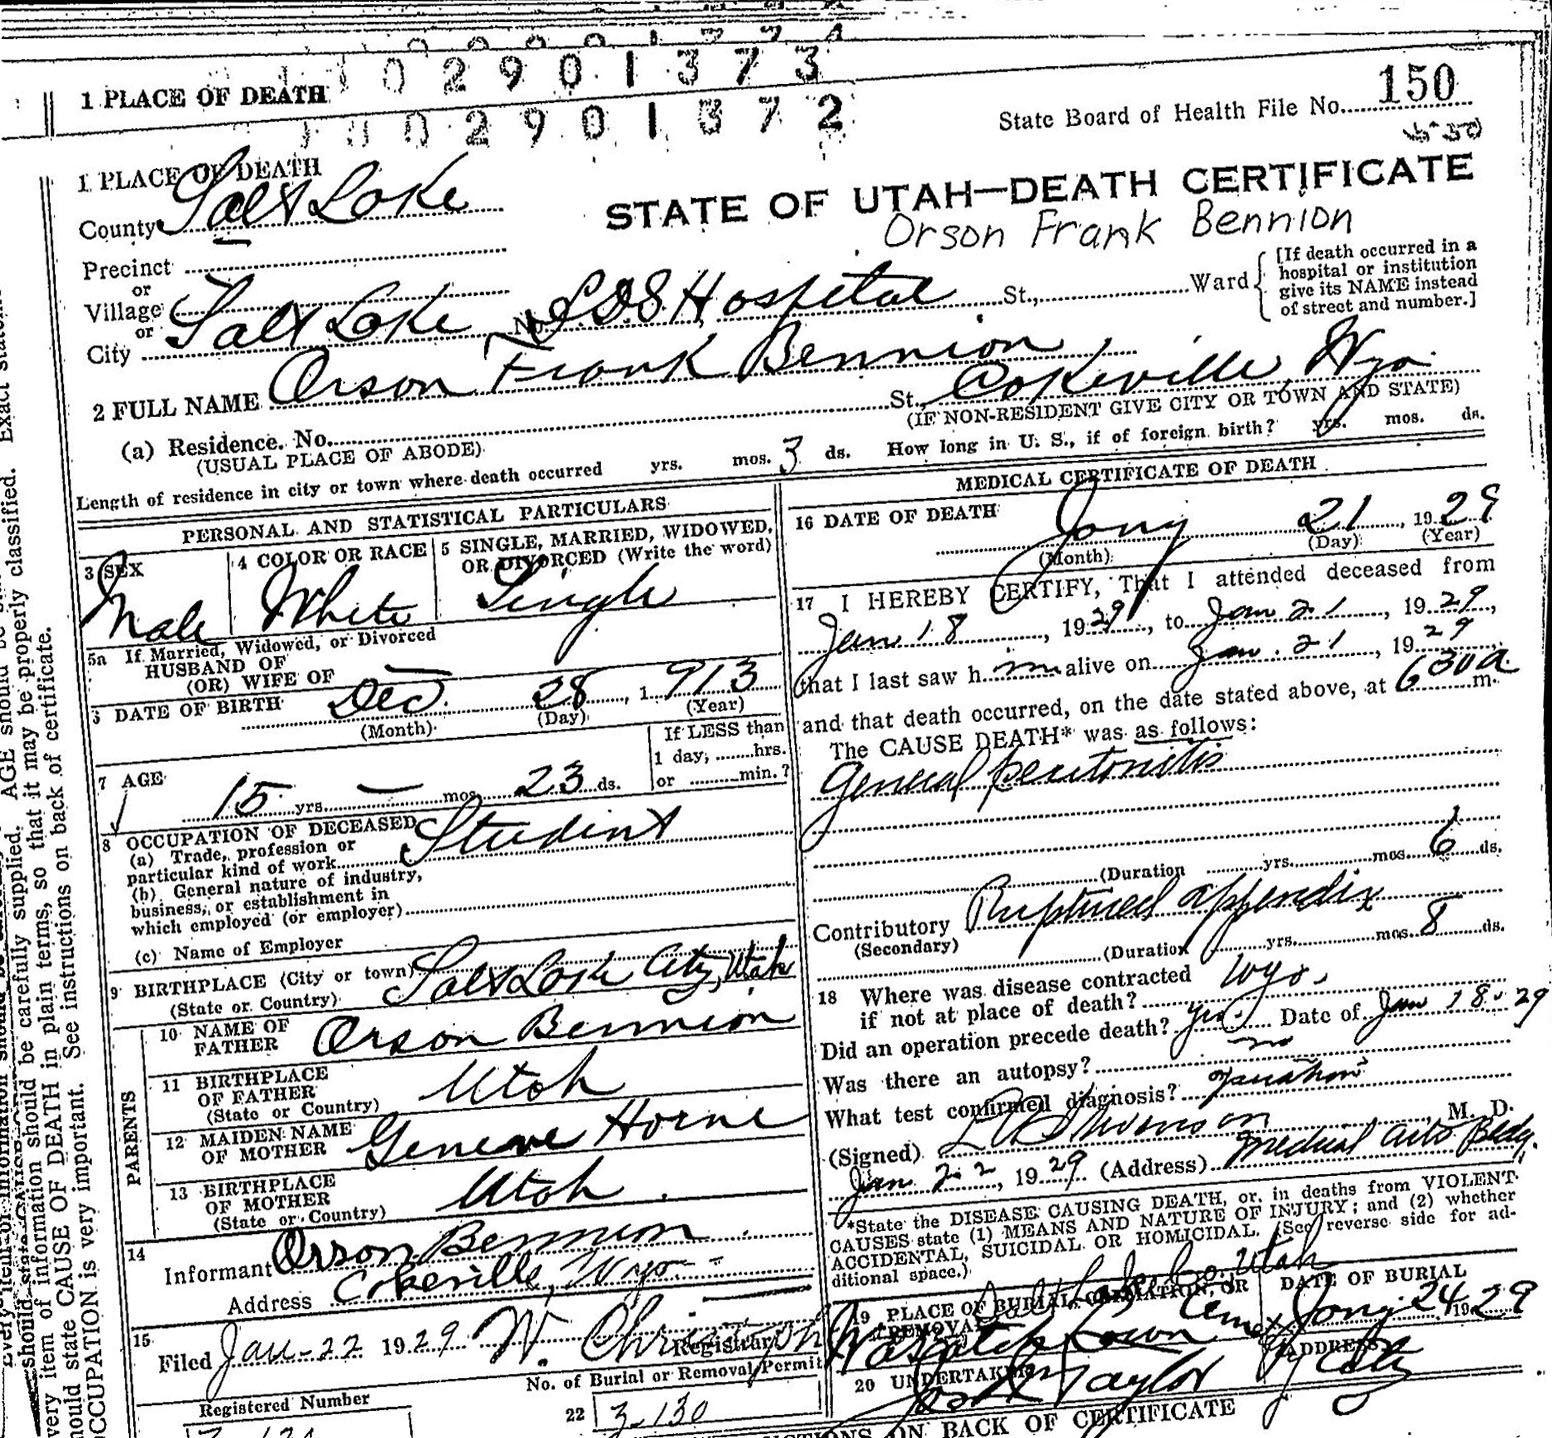 1 PLACE OF DEATH
02901373
02901372
State Board of Health File No. 150
1 PLACE OF DEATH
County Salt Lake
STATE OF UTAH—DEATH CERTIFICATE
Orson Frank Bennion
Precinct
or
Village
or
City Salt Lake No. LDS Hospital St., Ward
[If death occurred in a
hospital or institution
give its NAME instead
of street and number.]
2 FULL NAME Orson Frank Bennion
(a) Residence. No. St., Cokeville, Wyo.
(USUAL PLACE OF ABODE) (IF NON-RESIDENT GIVE CITY OR TOWN AND STATE)
Length of residence in city or town where death occurred yrs. mos. 3 ds. How long in U. S., if of foreign birth? yrs. mos. ds.
PERSONAL AND STATISTICAL PARTICULARS
3 SEX
Male
4 COLOR OR RACE
White
5 SINGLE, MARRIED, WIDOWED,
OR DIVORCED (Write the word)
Single
5a If Married, Widowed, or Divorced
HUSBAND OF
(OR) WIFE OF —
DATE OF BIRTH Dec 28, 1913
(Month) (Day) (Year)
7 AGE
15 yrs. — mos. 23 ds.
If LESS than
1 day, hrs.
or min.?
8 OCCUPATION OF DECEASED
(a) Trade, profession or
particular kind of work Student
(b) General nature of industry,
business, or establishment in
which employed (or employer)
(c) Name of Employer
9 BIRTHPLACE (City or town) Salt Lake City, Utah
(State or Country)
PARENTS
10 NAME OF
FATHER Orson Bennion
11 BIRTHPLACE
OF FATHER Utah
(State or Country)
12 MAIDEN NAME
OF MOTHER Geneve Horne
13 BIRTHPLACE
OF MOTHER Utah
(State or Country)
14
Informant Orson Bennion
Address Cokeville, Wyo.
15
Filed Jan-22 1929 W. Registrar
No. of Burial or Removal Permit
Registered Number
22 3-130
MEDICAL CERTIFICATE OF DEATH
16 DATE OF DEATH
Jany 21, 1929
(Month) (Day) (Year)
17 I HEREBY CERTIFY, That I attended deceased from
Jan 18, 1929, to Jan 21, 1929,
that I last saw h im alive on Jan. 21, 1929
and that death occurred, on the date stated above, at 630a m.
The CAUSE DEATH* was as follows:
General peritonitis
(Duration yrs. mos. 6 ds.
Contributory Ruptured appendix
(Secondary)
(Duration yrs. mos. 8 ds.
18 Where was disease contracted
if not at place of death? Wyo.
Did an operation precede death? yes. Date of Jan 18-29
Was there an autopsy? no
What test confirmed diagnosis?
(Signed) M. D.
Jan 22, 1929 (Address) Medical Arts Bldg.
*State the DISEASE CAUSING DEATH, or, in deaths from VIOLENT
CAUSES state (1) MEANS AND NATURE OF INJURY; and (2) whether
ACCIDENTAL, SUICIDAL OR HOMICIDAL. (See reverse side for ad-
ditional space.)
19 PLACE OF BURIAL, CREMATION, OR
REMOVAL
Salt Lake Co. Utah
Wasatch Lawn Cem
DATE OF BURIAL
Jany 24 1929
20 UNDERTAKER
Taylor
ADDRESS
City
ON BACK OF CERTIFICATE